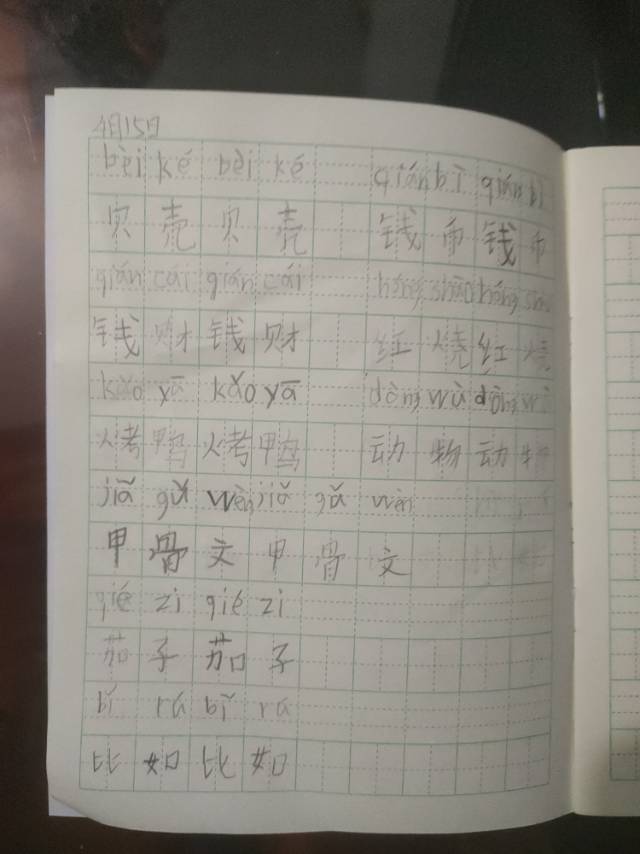 4月15日
bèi ké bèi ké qián bì qián bì
贝 壳 贝 壳 钱 币 钱 币
qián cái qián cái hóng shāo hóng
钱 财 钱 财 红 烧 红 烧
kǎo yā kǎo yā dòng wù dòng wù
烤 鸭 烤 鸭 动 物 动 物
jiǎ gǔ wén jiǎ gǔ wén
甲 骨 文 甲 骨 文
qié zi qié zi
茄 子 茄 子
bǐ rú bǐ rú
比 如 比 如